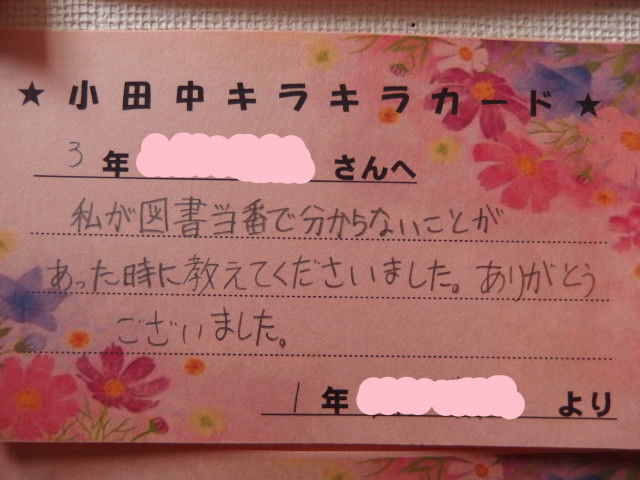 ★小田中キラキラカード★
3年 さんへ
私が図書当番で分からないことが
あった時に教えてくださいました。ありがとう
ございました。
1年 より